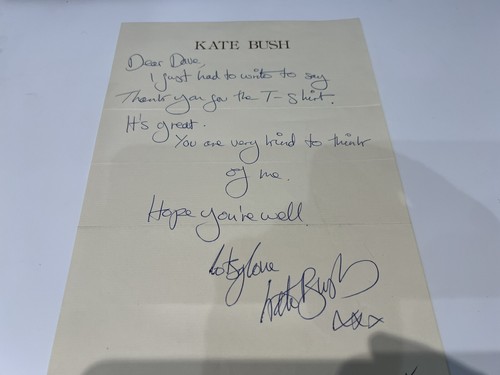 KATE BUSH
Dear Dave,
I just had to write to say
Thank you for the T-Shirt.
It's great.
You are very kind to think
of me.
Hope you're well
Lots of love
Kate Bush
xxx